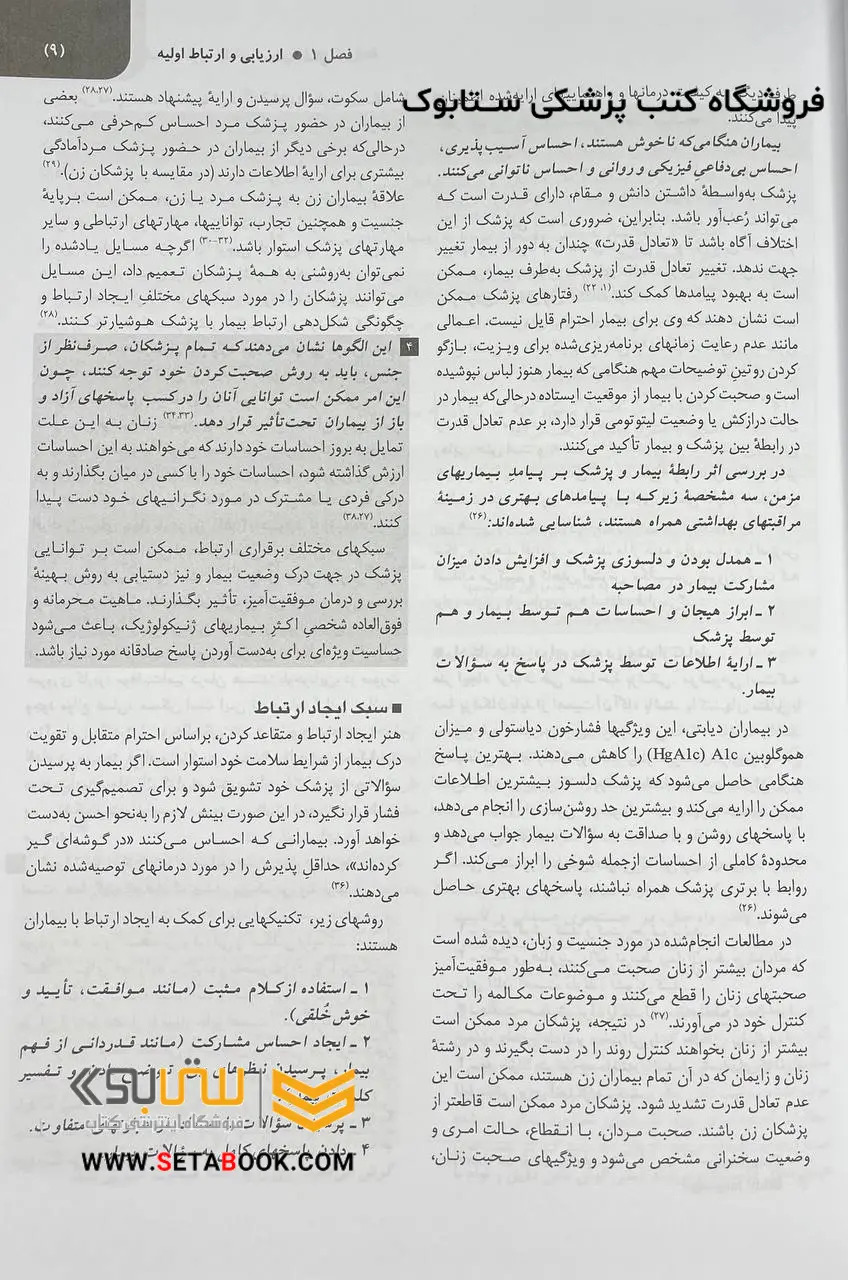 (۹)
فصل ۱ ● ارزیابی و ارتباط اولیه
فروشگاه کتب پزشکی ستابوک
پیدا می‌کنند.
بیماران هنگامی‌که ناخوش هستند، احساس آسیب‌پذیری،
احساس بی‌دفاعیِ فیزیکی و روانی و احساس ناتوانی می‌کنند.
پزشک به‌واسطهٔ داشتن دانش و مقام، دارای قدرت است که
می‌تواند رُعب‌آور باشد. بنابراین، ضروری است که پزشک از این
اختلاف آگاه باشد تا «تعادل قدرت» چندان به دور از بیمار تغییر
جهت ندهد. تغییر تعادل قدرت از پزشک به‌طرف بیمار، ممکن
است به بهبود پیامدها کمک کند.(۱، ۲۲) رفتارهای پزشک ممکن
است نشان دهند که وی برای بیمار احترام قایل نیست. اعمالی
مانند عدم رعایت زمانهای برنامه‌ریزی‌شده برای ویزیت، بازگو
کردن روتینِ توضیحات مهم هنگامی که بیمار هنوز لباس نپوشیده
است و صحبت کردن با بیمار از موقعیت ایستاده درحالی‌که بیمار در
حالت درازکش یا وضعیت لیتوتومی قرار دارد، بر عدم تعادل قدرت
در رابطهٔ بین پزشک و بیمار تأکید می‌کنند.
در بررسی اثر رابطهٔ بیمار و پزشک بر پیامدِ بیماریهای
مزمن، سه مشخصهٔ زیر که با پیامدهای بهتری در زمینهٔ
مراقبتهای بهداشتی همراه هستند، شناسایی شده‌اند:(۲۶)
۱ ـ همدل بودن و دلسوزی پزشک و افزایش دادن میزان
مشارکت بیمار در مصاحبه
۲ ـ ابراز هیجان و احساسات هم توسط بیمار و هم
توسط پزشک
۳ ـ ارایهٔ اطلاعات توسط پزشک در پاسخ به سؤالات
بیمار.
در بیماران دیابتی، این ویژگیها فشارخون دیاستولی و میزان
هموگلوبین A1c (HgA1c) را کاهش می‌دهند. بهترین پاسخ
هنگامی حاصل می‌شود که پزشک دلسوز بیشترین اطلاعات
ممکن را ارایه می‌کند و بیشترین حد روشن‌سازی را انجام می‌دهد،
با پاسخهای روشن و با صداقت به سؤالات بیمار جواب می‌دهد و
محدودهٔ کاملی از احساسات ازجمله شوخی را ابراز می‌کند. اگر
روابط با برتری پزشک همراه نباشند، پاسخهای بهتری حاصل
می‌شوند.(۲۶)
در مطالعات انجام‌شده در مورد جنسیت و زبان، دیده شده است
که مردان بیشتر از زنان صحبت می‌کنند، به‌طور موفقیت‌آمیز
صحبتهای زنان را قطع می‌کنند و موضوعات مکالمه را تحت
کنترل خود در می‌آورند.(۲۷) در نتیجه، پزشکان مرد ممکن است
بیشتر از زنان بخواهند کنترل روند را در دست بگیرند و در رشتهٔ
زنان و زایمان که در آن تمام بیماران زن هستند، ممکن است این
عدم تعادل قدرت تشدید شود. پزشکان مرد ممکن است قاطعتر از
پزشکان زن باشند. صحبت مردان، با انقطاع، حالت امری و
وضعیت سخنرانی مشخص می‌شود و ویژگیهای صحبت زنان،
شامل سکوت، سؤال پرسیدن و ارایهٔ پیشنهاد هستند.(۲۸،۲۷) بعضی
از بیماران در حضور پزشک مرد احساس کم‌حرفی می‌کنند،
درحالی‌که برخی دیگر از بیماران در حضور پزشک مردآمادگی
بیشتری برای ارایهٔ اطلاعات دارند (در مقایسه با پزشکان زن).(۲۹)
علاقهٔ بیماران زن به پزشک مرد یا زن، ممکن است برپایهٔ
جنسیت و همچنین تجارب، تواناییها، مهارتهای ارتباطی و سایر
مهارتهای پزشک استوار باشد.(۳۲-۳۰) اگرچه مسایل یادشده را
نمی‌توان به‌روشنی به همهٔ پزشکان تعمیم داد، این مسایل
می‌توانند پزشکان را در مورد سبکهای مختلفِ ایجاد ارتباط و
چگونگی شکل‌دهی ارتباط بیمار با پزشک هوشیارتر کنند.(۲۸)
۴ این الگوها نشان می‌دهند که تمام پزشکان، صرف‌نظر از
جنس، باید به روش صحبت‌کردن خود توجه کنند، چون
این امر ممکن است توانایی آنان را در کسب پاسخهای آزاد و
باز از بیماران تحت‌تأثیر قرار دهد.(۳۴،۳۳) زنان به این علت
تمایل به بروز احساسات خود دارند که می‌خواهند به این احساسات
ارزش گذاشته شود، احساسات خود را با کسی در میان بگذارند و به
درکی فردی یا مشترک در مورد نگرانیهای خود دست پیدا
کنند.(۳۸،۲۷)
سبکهای مختلف برقراری ارتباط، ممکن است بر توانایی
پزشک در جهت درک وضعیت بیمار و نیز دستیابی به روش بهینهٔ
بررسی و درمان موفقیت‌آمیز، تأثیر بگذارند. ماهیت محرمانه و
فوق‌العاده شخصیِ اکثرِ بیماریهای ژنیکولوژیک، باعث می‌شود
حساسیت ویژه‌ای برای به‌دست آوردن پاسخ صادقانه مورد نیاز باشد.
■ سبک ایجاد ارتباط
هنر ایجاد ارتباط و متقاعد کردن، براساس احترام متقابل و تقویت
درک بیمار از شرایط سلامت خود استوار است. اگر بیمار به پرسیدن
سؤالاتی از پزشک خود تشویق شود و برای تصمیم‌گیری تحت
فشار قرار نگیرد، در این صورت بینش لازم را به‌نحو احسن به‌دست
خواهد آورد. بیمارانی که احساس می‌کنند «در گوشه‌ای گیر
کرده‌اند»، حداقلِ پذیرش را در مورد درمانهای توصیه‌شده نشان
می‌دهند.(۳۶)
روشهای زیر، تکنیکهایی برای کمک به ایجاد ارتباط با بیماران
هستند:
۱ ـ استفاده از کلام مثبت (مانند موافقت، تأیید و
خوش خُلقی).
۲ ـ ایجاد احساس مشارکت (مانند قدردانی از فهم
بیمار، پرسیدن نظرهای وی، توضیح دادن و تفسیر
۳ ـ متفاوت.
۴ ـ دادن پاسخهای کامل به سؤالات بیمار.
ستابوک
فروشگاه اینترنتی کتاب
WWW.SETABOOK.COM